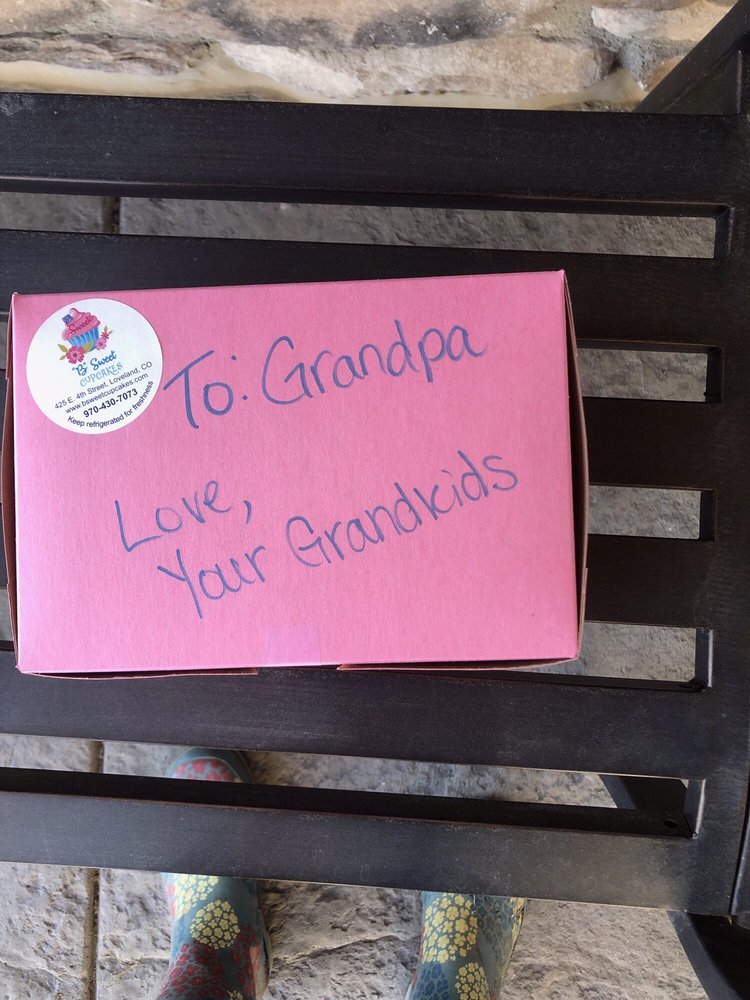 Sweet
B Sweet
CUPCAKES
425 E. 4th Street, Loveland, CO
www.bsweetcupcakes.com
970-430-7073
Keep refrigerated for freshness
To: Grandpa
Love,
Your Grandkids